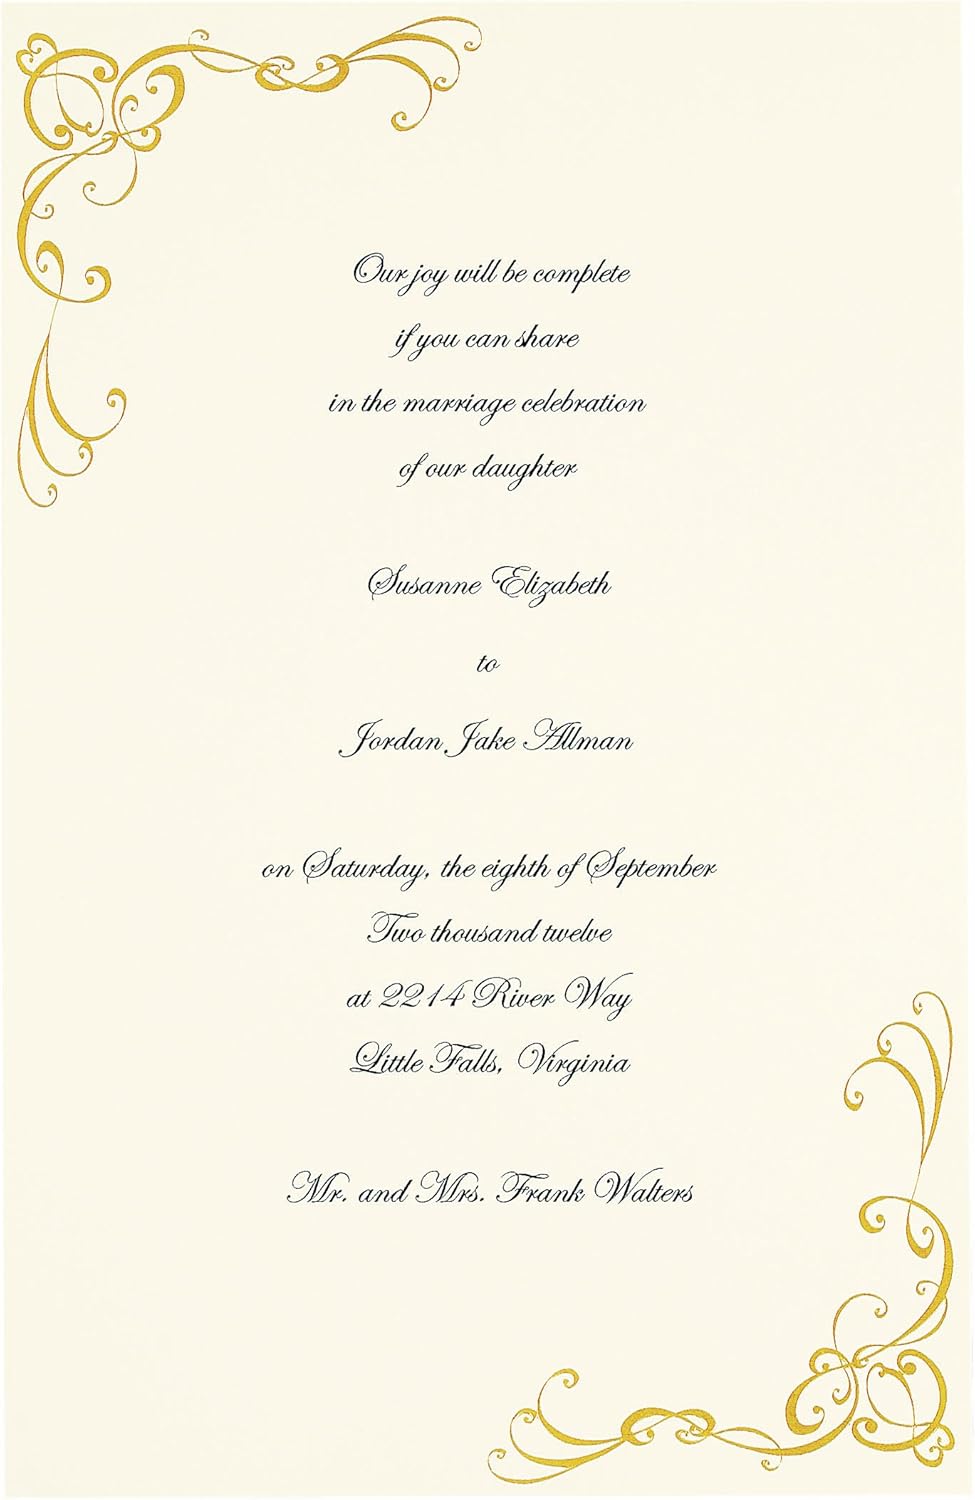 Our joy will be complete
if you can share
in the marriage celebration
of our daughter
Susanne Elizabeth
to
Jordan Jake Allman
on Saturday, the eighth of September
Two thousand twelve
at 2214 River Way
Little Falls, Virginia
Mr. and Mrs. Frank Walters